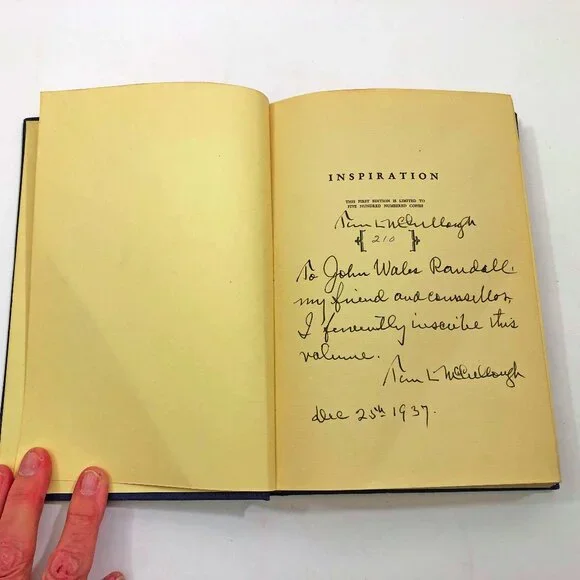 INSPIRATION
THIS FIRST EDITION IS LIMITED TO
FIVE HUNDRED NUMBERED COPIES
Tom L McCullough
[ 210 ]
To John Wales Randall.
my friend and counsellor,
I fervently inscribe this
volume.
Tom L McCullough
Dec 25th 1937.